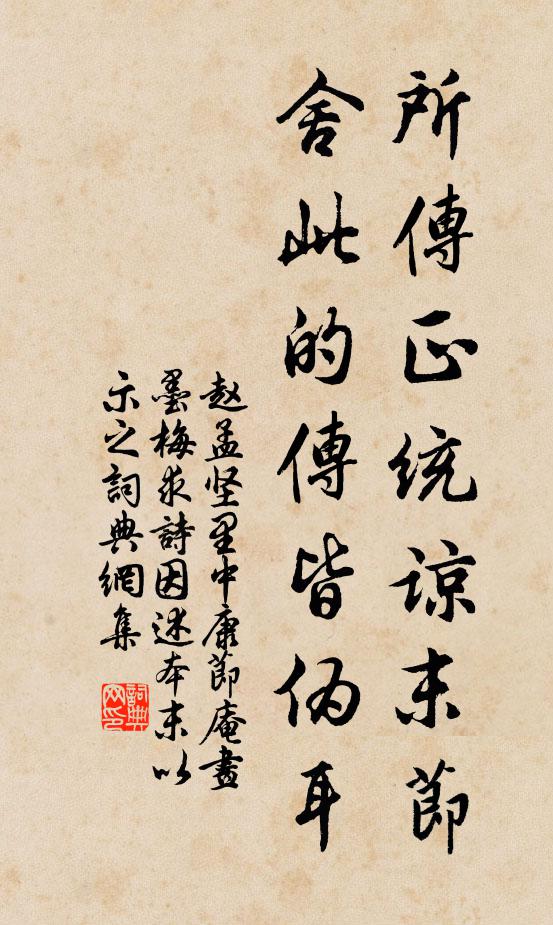 所傳正統諒末節
舍此的傳皆偽耳
赵孟坚里中康節庵畫
墨梅求詩因述本末以
示之詞典網集
詞典網印